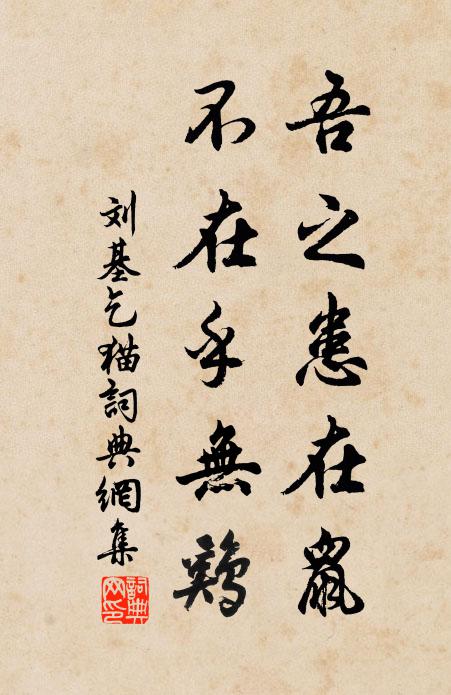 吾之患在鼠
不在乎無鷄
刘基乞猫詞典網集
詞典网印